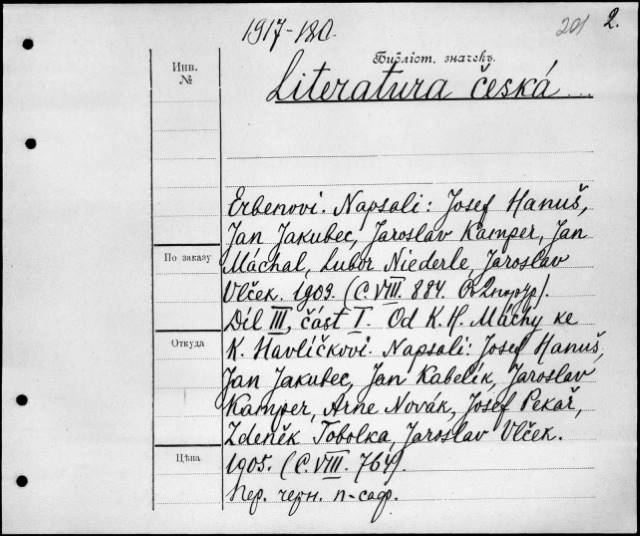 1917-180.
201 2.
Библіот. значекъ.
Инв.
№
Literatura česká
Erbenovi. Napsali: Josef Hanuš,
Jan Jakubec, Jaroslav Kamper, Jan
По заказу
Máchal, Lubor Niederle, Jaroslav
Vlček. 1909. (C. VIII. 884.
Díl III, část I. Od K. H. Máchy ke
Откуда
K. Havlíčkovi. Napsali: Josef Hanuš,
Jan Jakubec, Jan Kabelík, Jaroslav
Kamper, Arne Novák, Josef Pekař,
Zdeněk Tobolka, Jaroslav Vlček.
Цѣна
1905. (C. VIII. 764).
Пер. черн. п-саф.